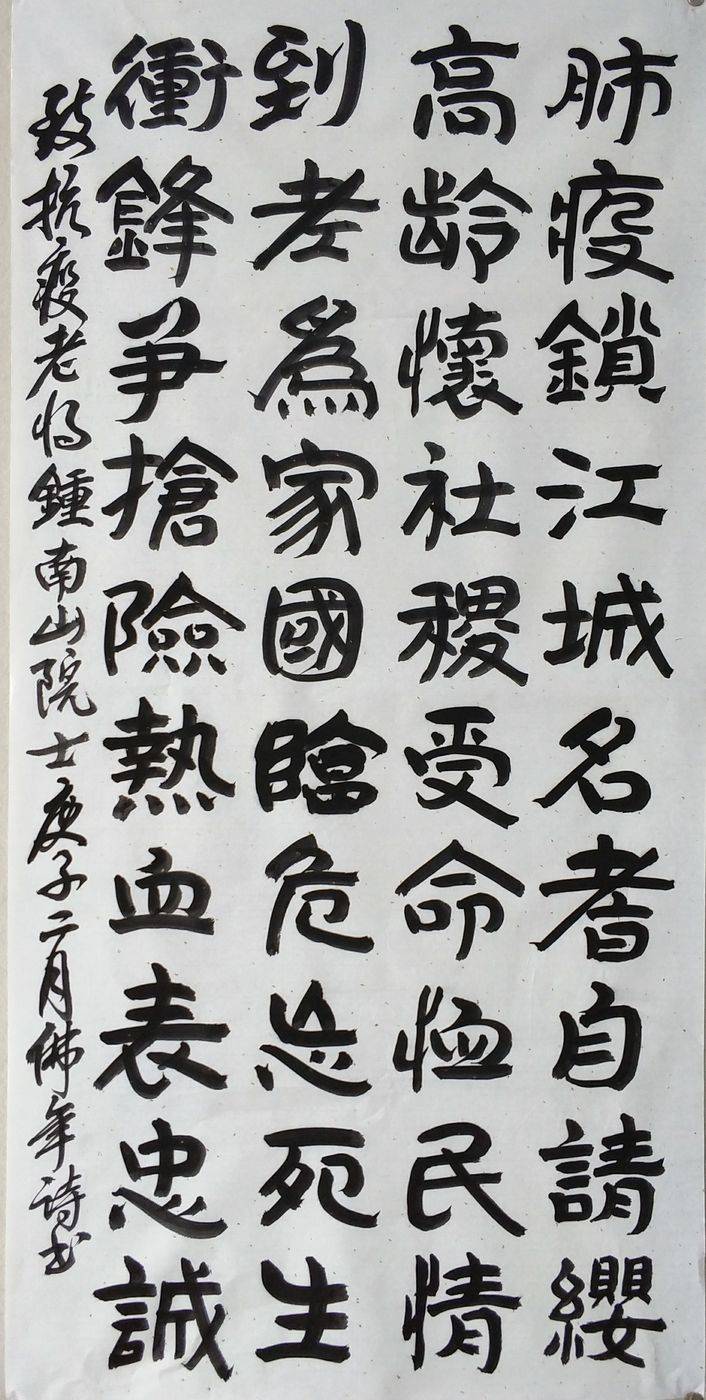 肺疫鎖江城名耆自請纓
高齡懷社稷受命恤民情
到老爲家國臨危忘死生
衝鋒爭搶險熱血表忠誠
致抗疫老將鍾南山院士庚子二月佛年詩書